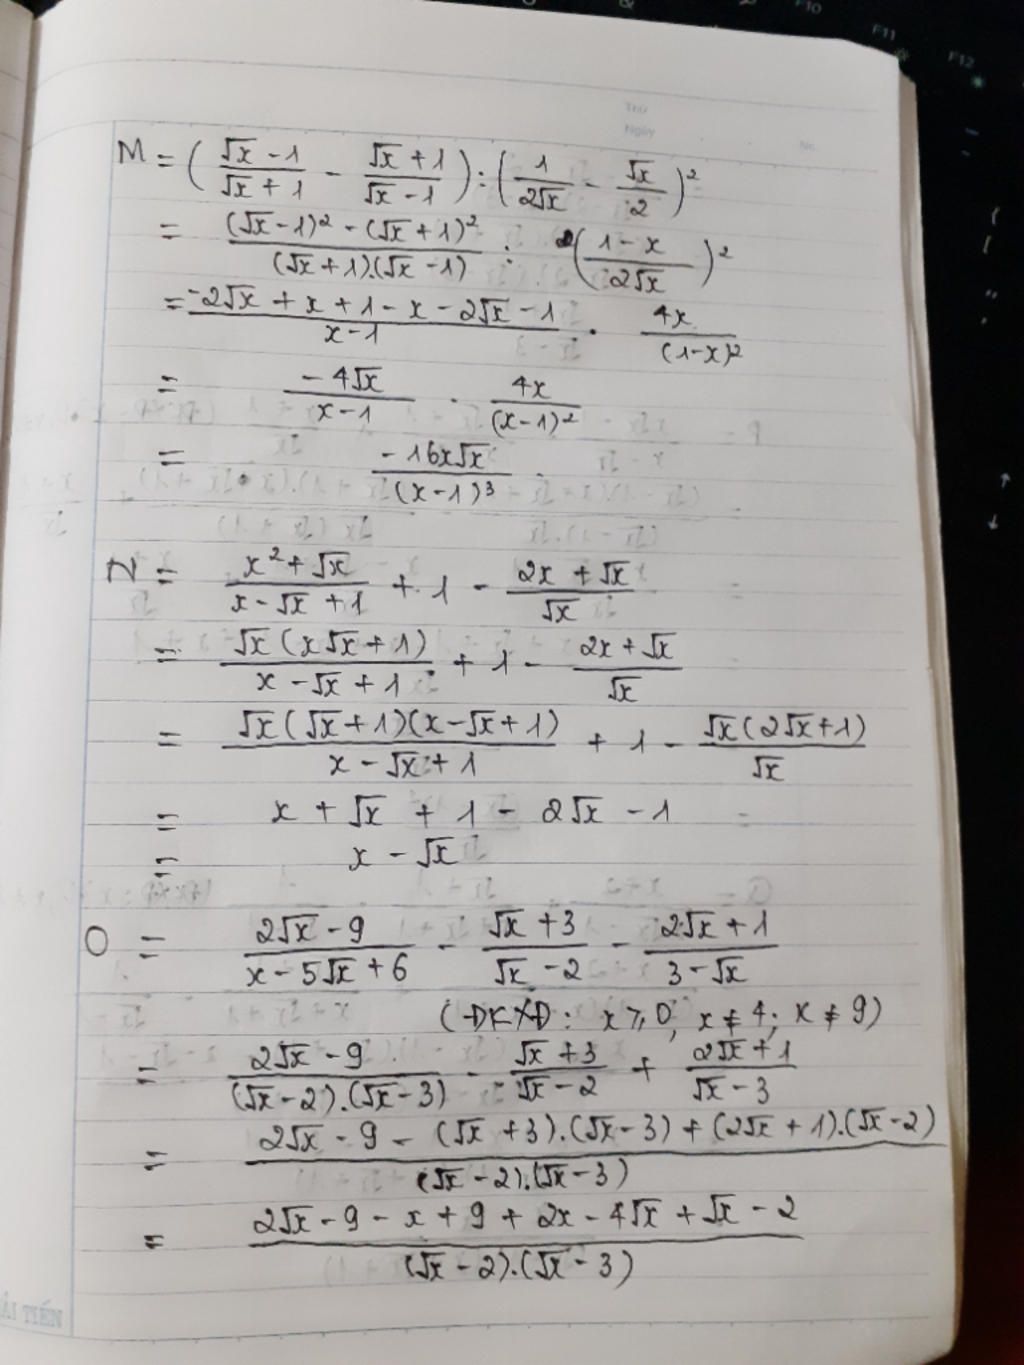 F10
F11
F12
Thứ
Ngày
No.
M = ( (√x - 1)/(√x + 1) - (√x + 1)/(√x - 1) ) : ( 1/(2√x) - √x/2 )²
= ((√x - 1)² - (√x + 1)²)/((√x + 1).(√x - 1)) : ( (1 - x)/(2√x) )²
= (-2√x + x + 1 - x - 2√x - 1)/(x - 1) . 4x/(1-x)²
= (-4√x)/(x - 1) . 4x/(x - 1)²
= (-16x√x)/(x - 1)³
N = (x² + √x)/(x - √x + 1) + 1 - (2x + √x)/√x
= (√x (x√x + 1))/(x - √x + 1) + 1 - (2x + √x)/√x
= (√x (√x + 1)(x - √x + 1))/(x - √x + 1) + 1 - (√x (2√x + 1))/√x
= x + √x + 1 - 2√x - 1
= x - √x
O = (2√x - 9)/(x - 5√x + 6) - (√x + 3)/(√x - 2) - (2√x + 1)/(3 - √x)
(ĐKXĐ: x ≥ 0; x ≠ 4; x ≠ 9)
= (2√x - 9)/((√x - 2).(√x - 3)) - (√x + 3)/(√x - 2) + (2√x + 1)/(√x - 3)
= (2√x - 9 - (√x + 3).(√x - 3) + (2√x + 1).(√x - 2))/((√x - 2).(√x - 3))
= (2√x - 9 - x + 9 + 2x - 4√x + √x - 2)/((√x - 2).(√x - 3))
ẢI TIẾN